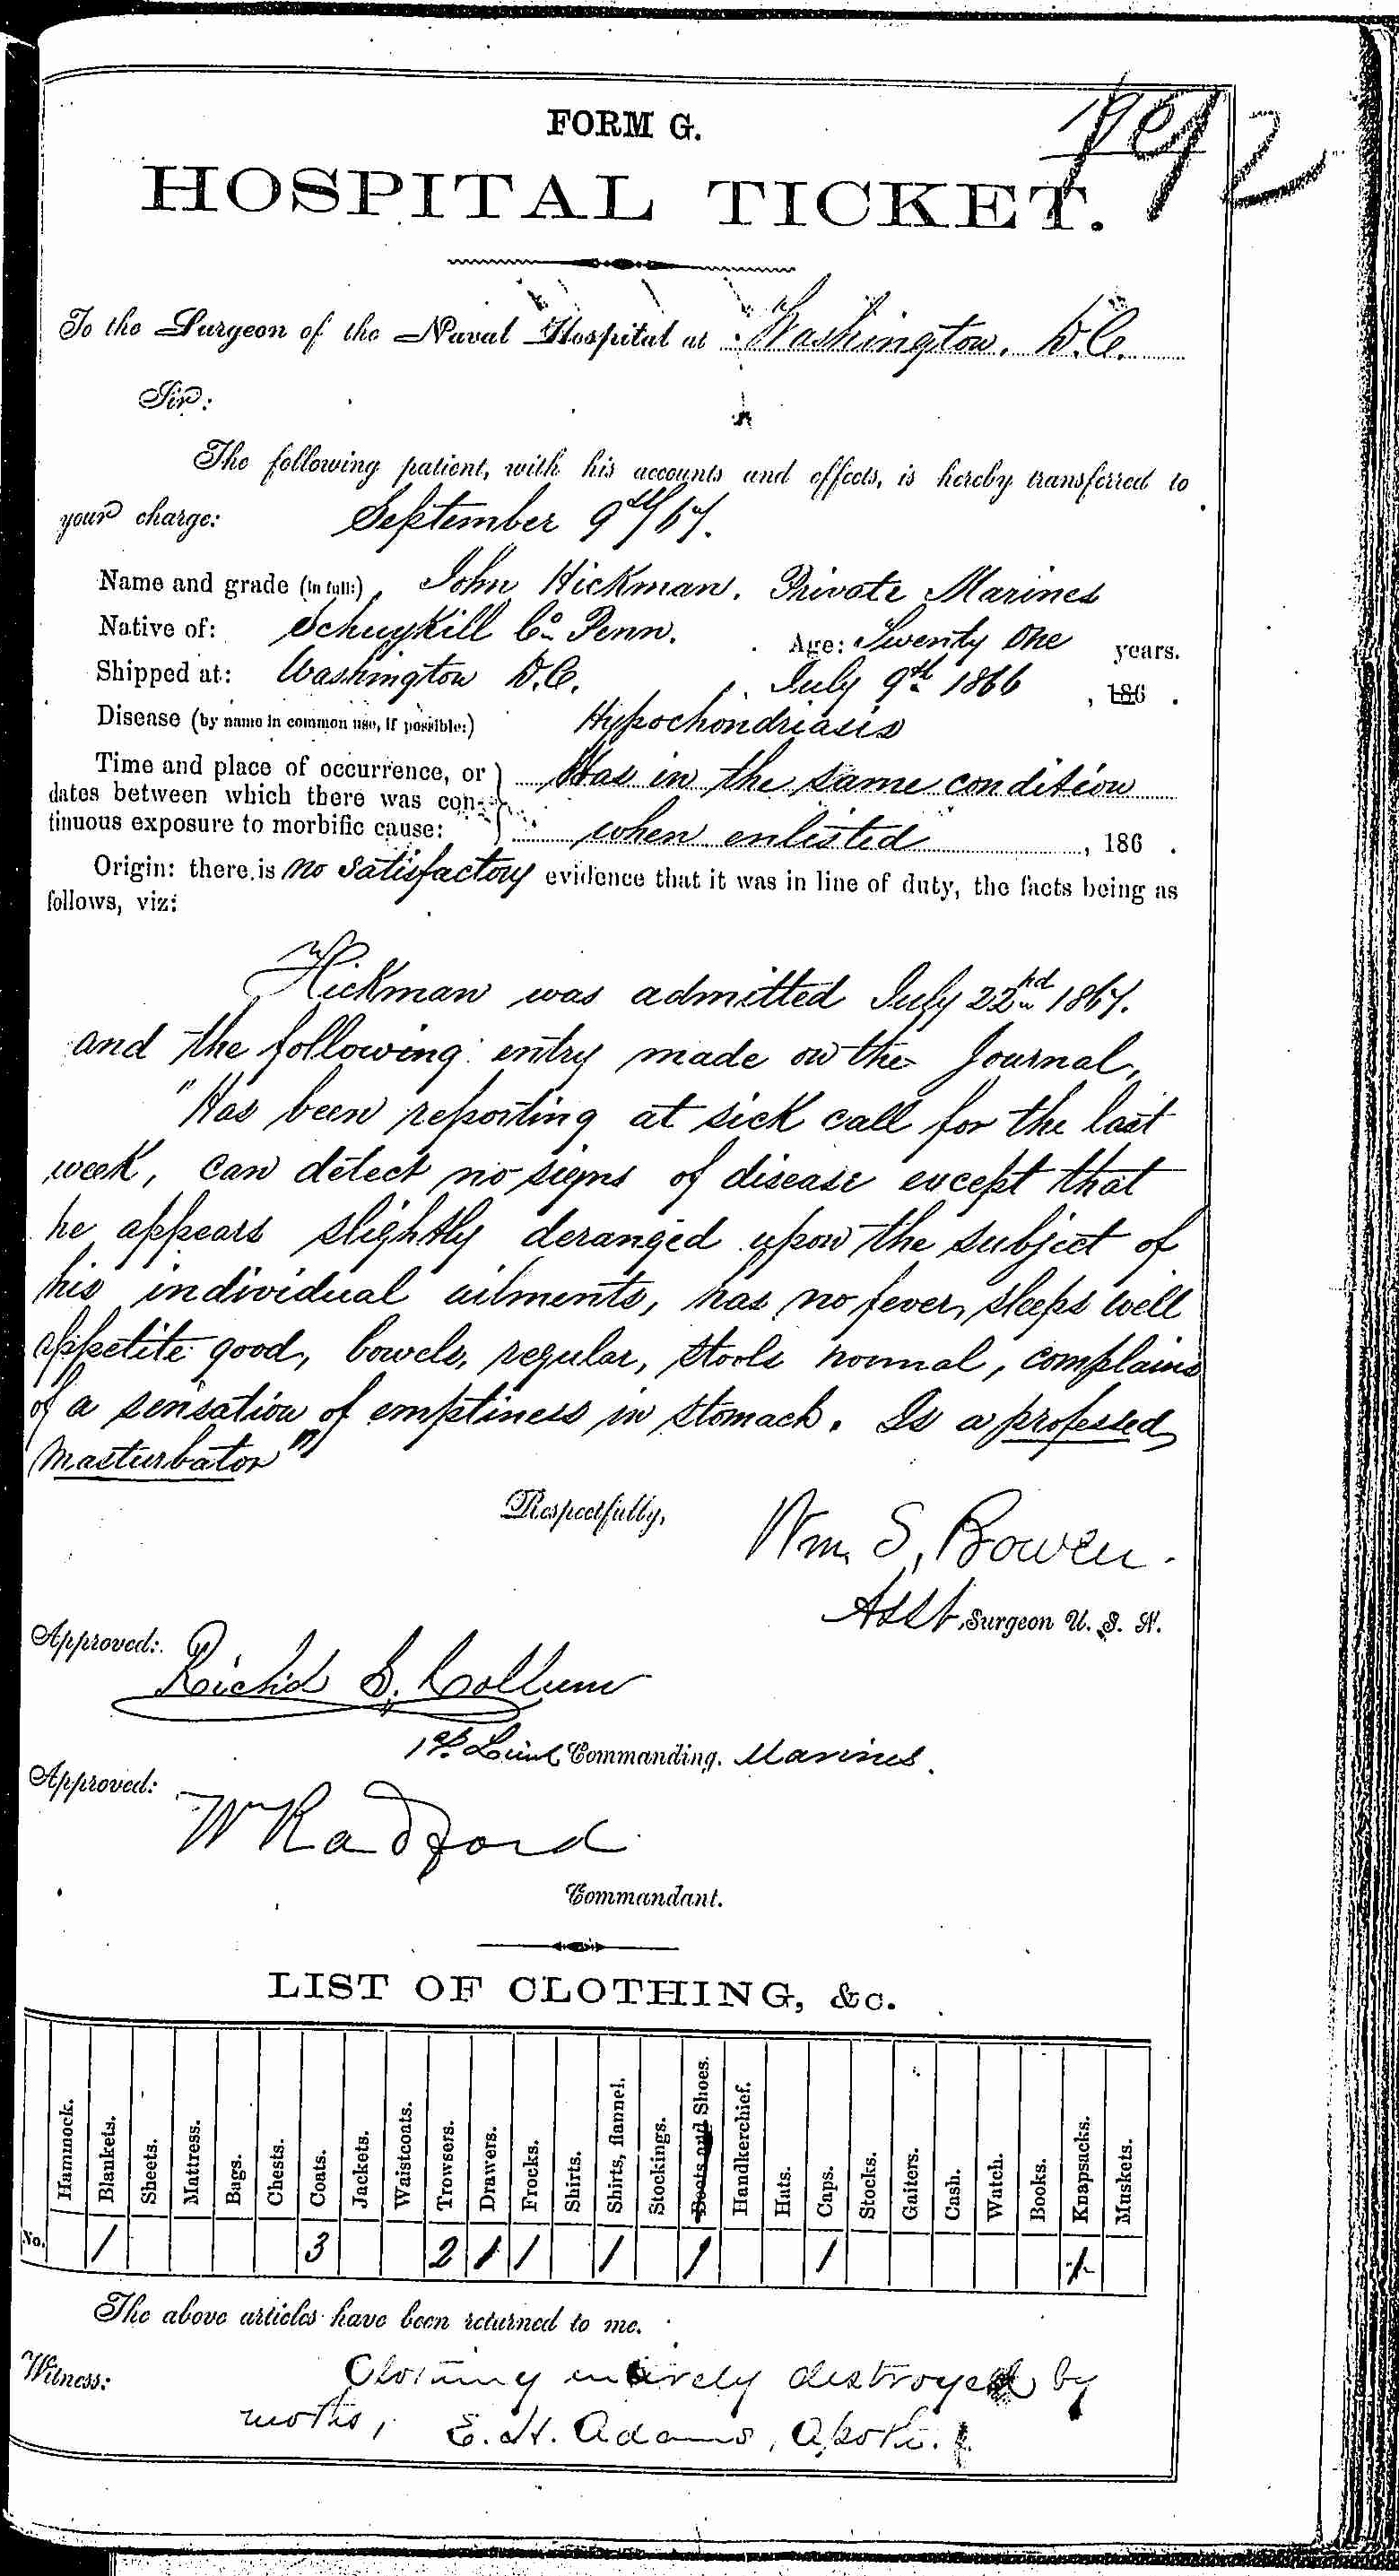 FORM G.
192
HOSPITAL TICKET.
To the Surgeon of the Naval Hospital at Washington, D.C.
Sir:
The following patient, with his accounts and effects, is hereby transferred to
your charge: September 9th/67.
Name and grade (in full:) John Hickman. Private Marines
Native of: Schuykill Co. Penn. Age: Twenty One years.
Shipped at: Washington D.C. , July 9th 1866 , 186 .
Disease (by name in common use, if possible:) Hypochondriasis
Time and place of occurrence, or } Was in the same condition
dates between which there was con-
tinuous exposure to morbific cause: } when enlisted , 186 .
Origin: there is no satisfactory evidence that it was in line of duty, the facts being as
follows, viz:
Hickman was admitted July 22nd 1867.
and the following entry made on the Journal,
"Has been reporting at sick call for the last
week, can detect no signs of disease except that
he appears slightly deranged upon the subject of
his individual ailments, has no fever, sleeps well
appetite good, bowels, regular, stools normal, complains
of a sensation of emptiness in stomach. Is a professed
masturbator"
Respectfully,
Wm. S. Bowen.
Asst. Surgeon U. S. N.
Approved:
Rich'd S. Collum
1st Lieut Commanding. Marines.
Approved:
W Radford
Commandant.
LIST OF CLOTHING, &c.
Hammock. Blankets. Sheets. Mattress. Bags. Chests. Coats. Jackets. Waistcoats. Trowsers. Drawers. Frocks. Shirts. Shirts, flannel. Stockings. Boots and Shoes. Handkerchief. Hats. Caps. Stocks. Gaiters. Cash. Watch. Books. Knapsacks. Muskets.
No. 1 3 2 1 1 1 1 1 1
The above articles have been returned to me.
Witness: Clothing entirely destroyed by
moths, E. H. Adams, Apoth.